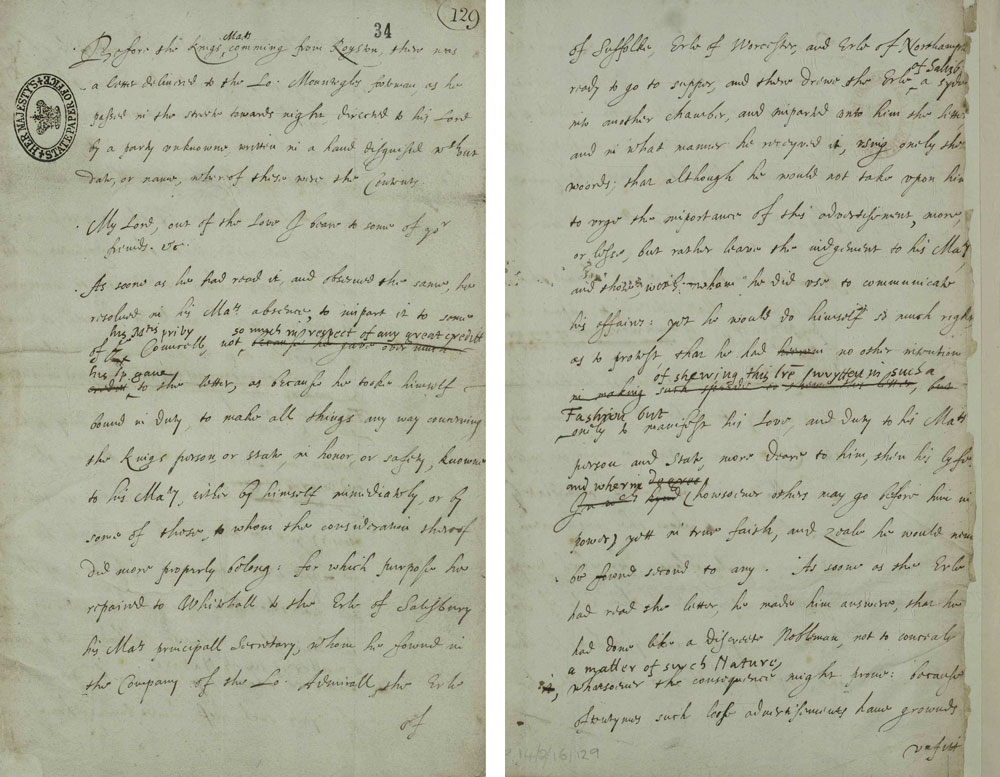 129
34
HER MAJESTY'S STATE PAPER OFFICE
Before the Kings Mats comming from Royston, there was
a letter delivered to the Lo: Mountegles footman as he
passed in the streete towards night directed to his Lord
by a party unknowne written in a hand disguised wthout
Date, or name, wherof these were the Contents.
My Lord, out of the Love I beare to some of yor
freinds. &c.
As soone as he had read it, and observed the same, he
resolved in his Mats absence, to impart it to some
his Mats privy so much in respect of any great creditt
of Councell, not because he gave over much
his lp gave
creditt to the letter, as because he tooke himself
bound in Duty, to make all things any way concerning
the Kings person, or state, in honor, or safety, knowne
to his Maty, either by himself immediately, or by
some of those, to whom the consideration therof
Did more properly belong: for which purpose he
repaired to Whitehall to the Erle of Salisbury
his Mats principall Secretary, whom he found in
the Company of the Lo: Admirall, the Erle
of
of Suffolke, Erle of Worcester, and Erle of Northamp
of Salisb
ready to go to supper, and there drewe the Erle a syde
into another chamber, and imparted unto him the letter
and in what manner he receyved it, using onely these
woords: that although he would not take upon him
to urge the importance of this advertisement, more,
or lesse, but rather leave the iudgement to his Maty,
and those, wth whom he did use to communicate
his affaires: yet he would do himself so much right
as to protest that he had no other intention
of shewing this lre (wrytten in such a
in making such speede to shewe this letter, but
Fashion but
onely to manifest his Love, and Duty to his Mats
person and State, more deare to him, then his lyfe
and wherin
(howsoever others may go before him in
power) yett in true faith, and zeale he would never
be found second to any. As soone as the Erle
had read the letter, he made him answere, that he
had done like a discreete Nobleman, not to conceale
a matter of such Nature,
whatsoever the consequence might prove: because
oftentymes such lose advertisements have grownde
unfitt
14/216/129